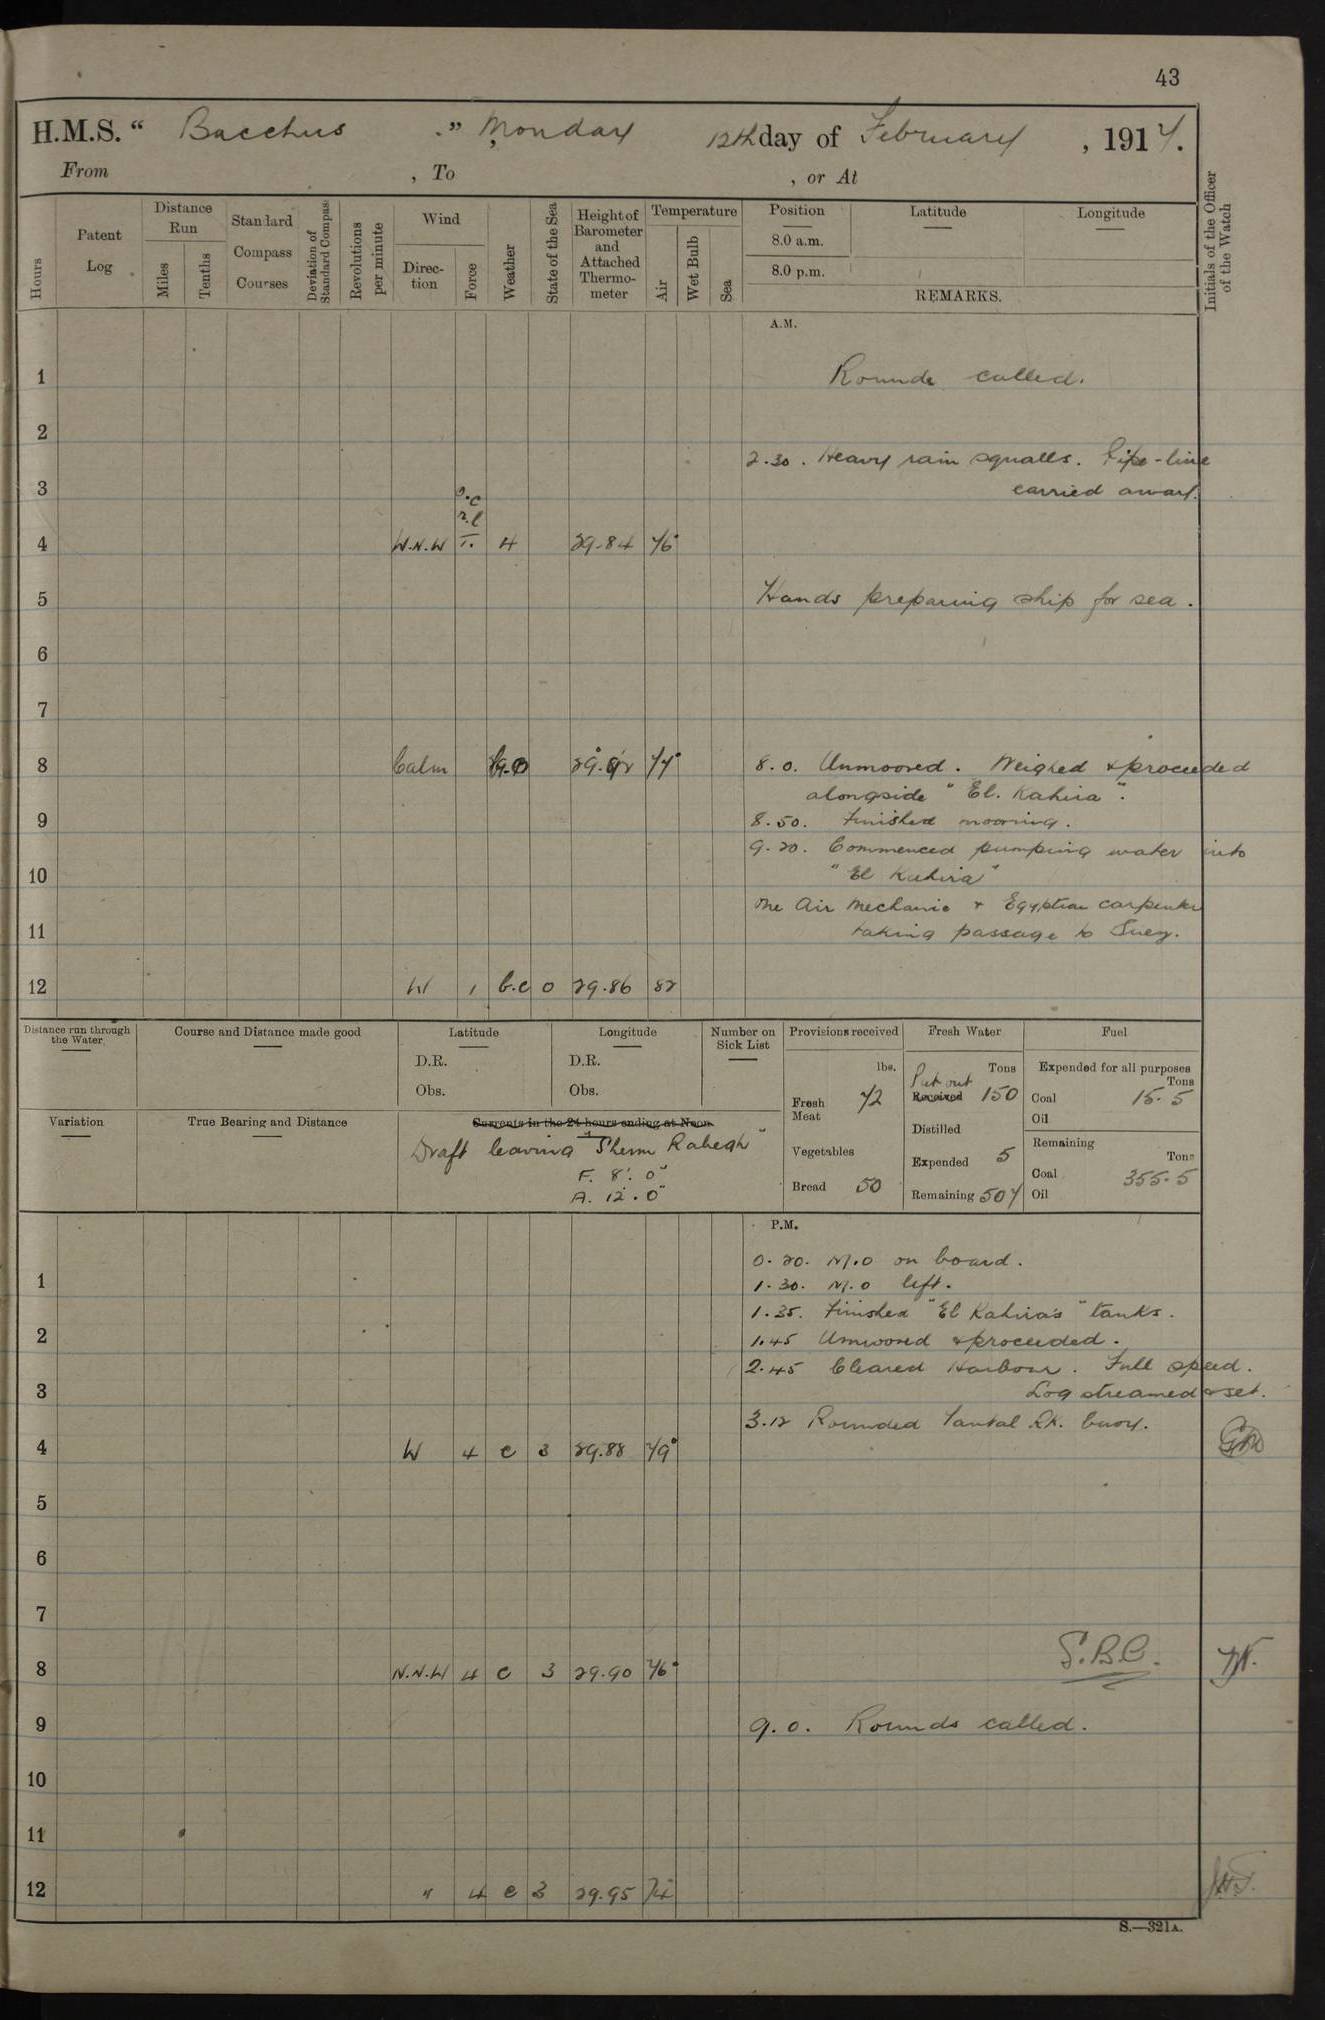 43
H.M.S. “ Bacchus .” Monday 12th day of February , 1917.
From , To , or At
Hours
Patent Log
Distance Run
Miles
Tenths
Standard Compass Courses
Deviation of Standard Compass
Revolutions per minute
Wind
Direction
Force
Weather
State of the Sea
Height of Barometer and Attached Thermometer
Temperature
Air
Wet Bulb
Sea
Position Latitude Longitude
8.0 a.m.
8.0 p.m.
REMARKS.
Initials of the Officer of the Watch
A.M.
1 Rounds called.
2
2.30. Heavy rain squalls. Pipe-line
3 carried away.
o.c
r.l
4 W.N.W T. 4 29.84 76°
5 Hands preparing ship for sea.
6
7
8 Calm 29.92 77° 8.0. Unmoored. Weighed & proceeded
alongside "El. Kahira".
9 8.50. Finished mooring.
9.20. Commenced pumping water into
10 "El Kahira"
One Air Mechanic & Egyptian carpenter
11 taking passage to Suez.
12 W 1 b.c 0 29.86 82
Distance run through the Water
Course and Distance made good
Latitude
D.R.
Obs.
Longitude
D.R.
Obs.
Number on Sick List
Provisions received
lbs.
Fresh Meat 72
Vegetables
Bread 50
Fresh Water
Tons
Put out
Received 150
Distilled
Expended 5
Remaining 507
Fuel
Expended for all purposes
Tons
Coal 15.5
Oil
Remaining
Tons
Coal 355.5
Oil
Variation
True Bearing and Distance
Currents in the 24 hours ending at Noon
Draft leaving "Sherm Rabegh"
F. 8'. 0"
A. 12'. 0"
P.M.
0.20. M.O on board.
1 1.30. M.O left.
1.35. Finished "El Kahira's" tanks.
2 1.45 Unmoored & proceeded.
2.45 Cleared Harbour. Full speed.
3 Log streamed & set.
3.12 Rounded Rk. buoy.
4 W 4 c 3 29.88 79°
5
6
7
S.B.C.
8 N.N.W 4 c 3 29.90 76°
9 9.0. Rounds called.
10
11
12 " 4 c 3 29.95 74°
S.—321A.